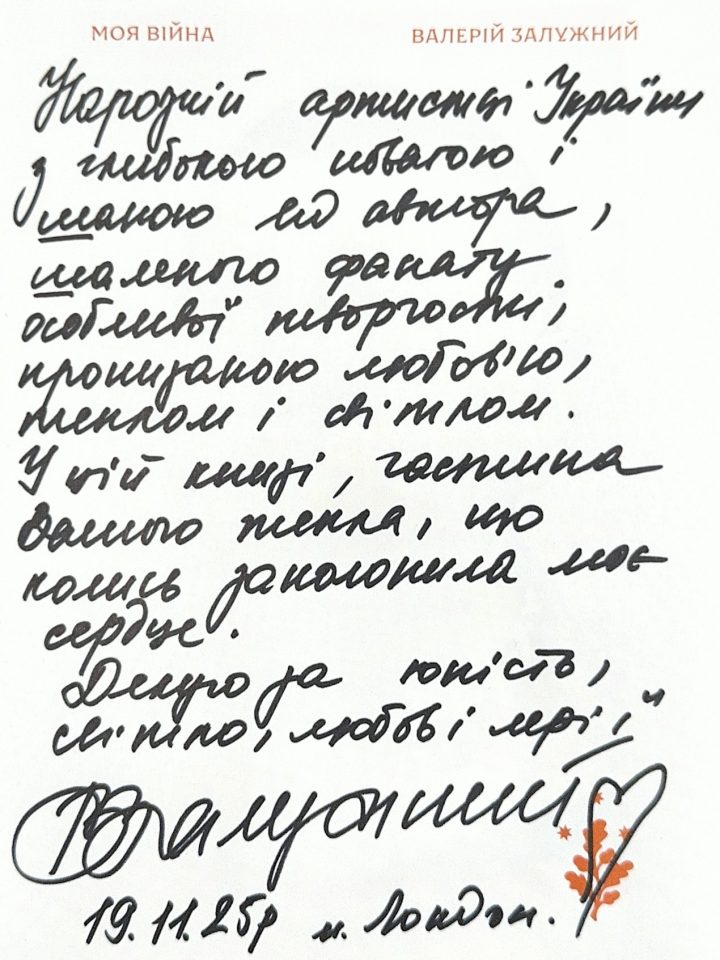 МОЯ ВІЙНА
ВАЛЕРІЙ ЗАЛУЖНИЙ
Народній артистці України
з глибокою повагою і
шаною від автора,
шаленого фанату
особливої творчості,
пронизаною любов'ю,
теплом і світлом.
У цій книзі, частина
Вашого тепла, що
колись заполонила моє
серце.
Дякую за юність,
світло, любов і мрії
Залужний
19.11.25р м. Лондон.